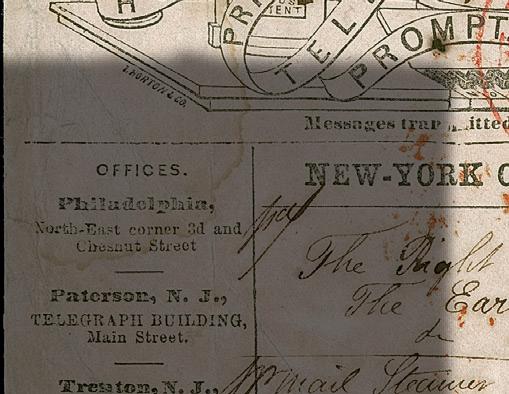 H
PRI
TENT
TEL
PROMPT
L. HORTON & CO.
Messages transmitted
NEW-YORK
OFFICES.
Philadelphia,
North-East corner 3d and
Chesnut Street
Paterson, N. J.,
TELEGRAPH BUILDING,
Main Street.
Trenton, N. J.,
pd
The Right
The Ear
pr Mail Steamer